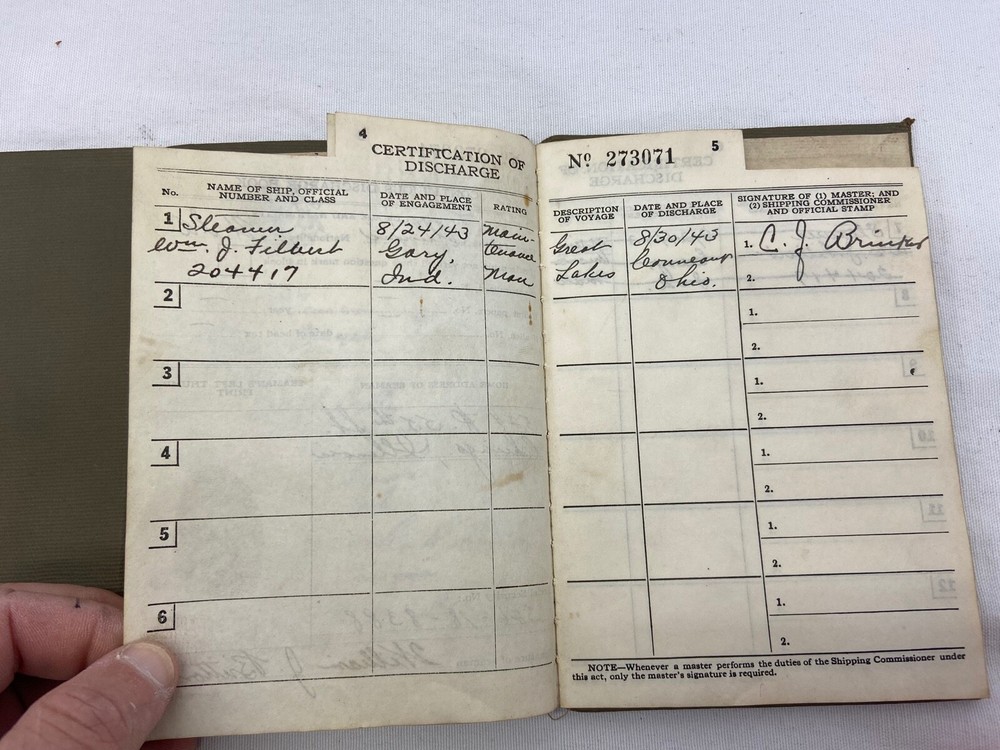 4
CERTIFICATION OF
DISCHARGE
No.
NAME OF SHIP, OFFICIAL
NUMBER AND CLASS
DATE AND PLACE
OF ENGAGEMENT
RATING
1 Steamer
Wm. J. Filbert
204417
8/24/43
Gary,
Ind.
Main-
tenance
Man
2
3
4
5
6
Nº 273071
5
DESCRIPTION
OF VOYAGE
DATE AND PLACE
OF DISCHARGE
SIGNATURE OF (1) MASTER; AND
(2) SHIPPING COMMISSIONER
AND OFFICIAL STAMP
Great
Lakes
8/30/43
Conneaut
Ohio.
1. C. J.
2.
1.
2.
1.
2.
1.
2.
1.
2.
1.
2.
NOTE—Whenever a master performs the duties of the Shipping Commissioner under
this act, only the master's signature is required.